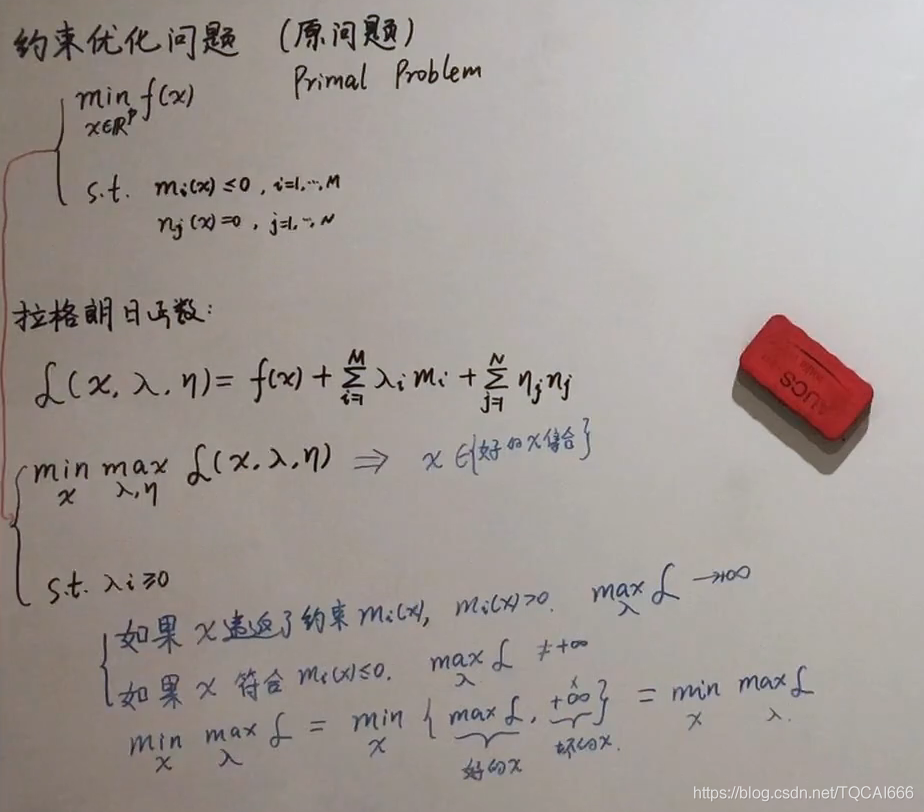 约束优化问题 (原问题)
Primal Problem
min f(x)
x∈ℝᵖ
s.t. mᵢ(x) ≤ 0, i=1,…,M
nⱼ(x)=0, j=1,…,N
拉格朗日函数:
ℒ(x, λ, η) = f(x) + Σ_{i=1}^{M} λᵢmᵢ + Σ_{j=1}^{N} ηⱼnⱼ
min_x max_{λ,η} ℒ(x, λ, η) ⇒ x∈{好的x集合}
s.t. λᵢ ≥ 0
如果 x 违返了约束 mᵢ(x), mᵢ(x)>0. max_λ ℒ → +∞
如果 x 符合 mᵢ(x)≤0. max_λ ℒ ≠ +∞
min_x max_λ ℒ = min_x {max ℒ, +∞} = min_x max_λ ℒ
好的x 坏的x.
AUCS
https://blog.csdn.net/TQCAI666